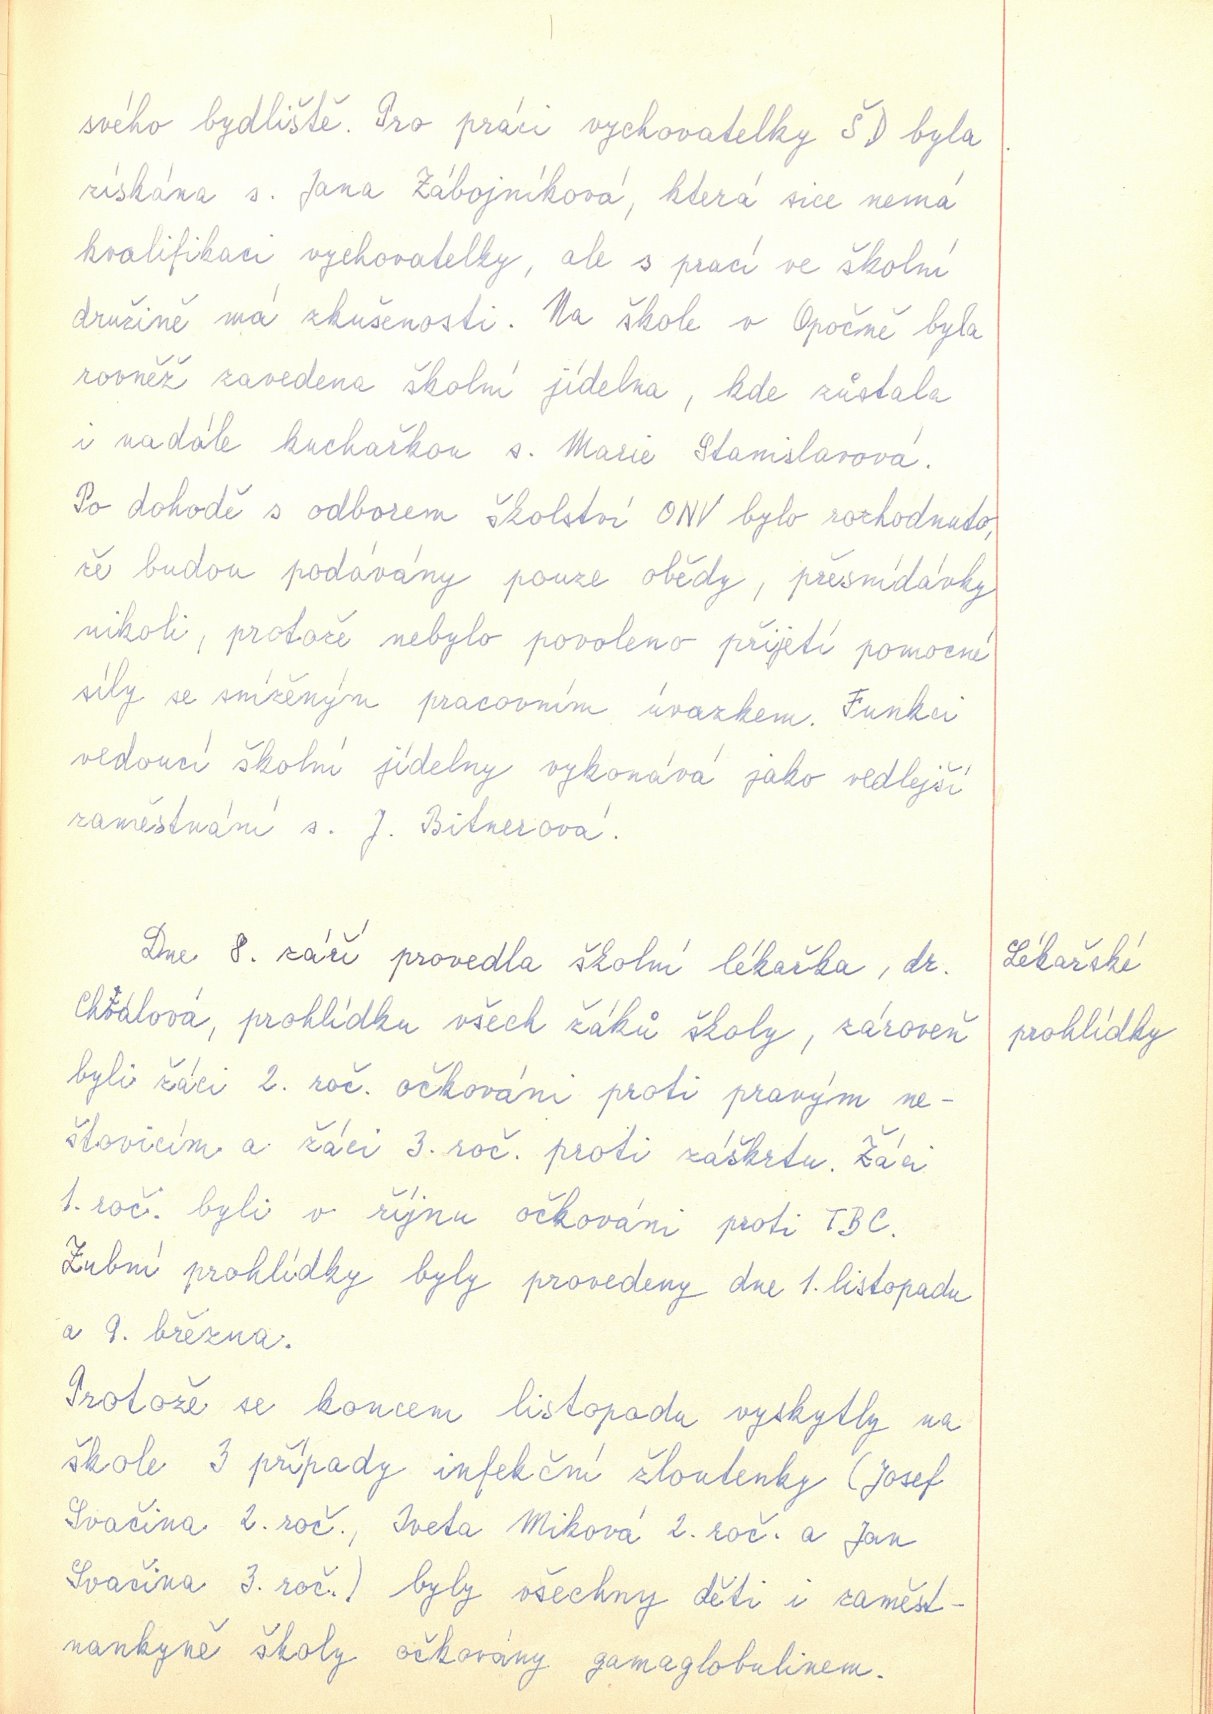 svého bydliště. Pro práci vychovatelky ŠD byla
získána s. Jana Zábojníková, která sice nemá
kvalifikaci vychovatelky, ale s prací ve školní
družině má zkušenosti. Na škole v Opočně byla
rovněž zavedena školní jídelna, kde zůstala
i nadále kuchařkou s. Marie Stanislavová.
Po dohodě s odborem školství ONV bylo rozhodnuto,
že budou podávány pouze obědy, přesnídávky
nikoli, protože nebylo povoleno přijetí pomocné
síly se sníženým pracovním úvazkem. Funkci
vedoucí školní jídelny vykonává jako vedlejší
zaměstnání s. J. Bitnerová.
Dne 8. září provedla školní lékařka, dr.
Lékařské
, prohlídku všech žáků školy, zároveň
prohlídky
byli žáci 2. roč. očkováni proti pravým ne-
štovicím a žáci 3. roč. proti záškrtu. Žáci
1. roč. byli v říjnu očkováni proti TBC.
Zubní prohlídky byly provedeny dne 1. listopadu
a 9. března.
Protože se koncem listopadu vyskytly na
škole 3 případy infekční žloutenky (Josef
Svačina 2. roč., Iveta Miková 2. roč. a Jan
Svačina 3. roč.) byly všechny děti i zaměst-
nankyně školy očkovány gamaglobulinem.